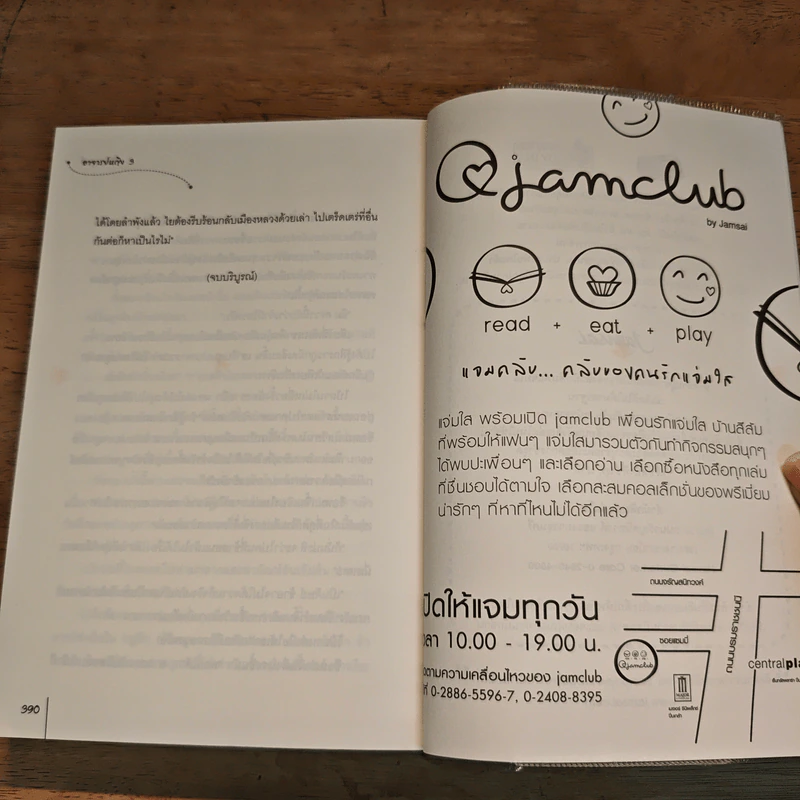 ได้โดยลำพังแล้ว ไยต้องรีบร้อนกลับเมืองหลวงด้วยเล่า ไปเตร็ดเตร่ที่อื่น
กันต่อก็หาเป็นไรไม่"
(จบบริบูรณ์)
390
jamclub
by Jamsai
read + eat + play
แจมคลับ... คลับของคนรักแจ่มใส
แจ่มใส พร้อมเปิด jamclub เพื่อนรักแจ่มใส บ้านสีส้ม
ที่พร้อมให้แฟนๆ แจ่มใสมารวมตัวกันทำกิจกรรมสนุกๆ
ได้พบปะเพื่อนๆ และเลือกอ่าน เลือกซื้อหนังสือทุกเล่ม
ที่ชื่นชอบได้ตามใจ เลือกสะสมคอลเล็กชั่นของพรีเมี่ยม
น่ารักๆ ที่หาที่ไหนไม่ได้อีกแล้ว
ปิดให้แจมทุกวัน
ลา 10.00 - 19.00 น.
ตามความเคลื่อนไหวของ jamclub
ที่ 0-2886-5596-7, 0-2408-8395
ถนนจรัญสนิทวงศ์
ถนนบรมราชชนนี
ซอยแซมมี่
jamclub
centralpla